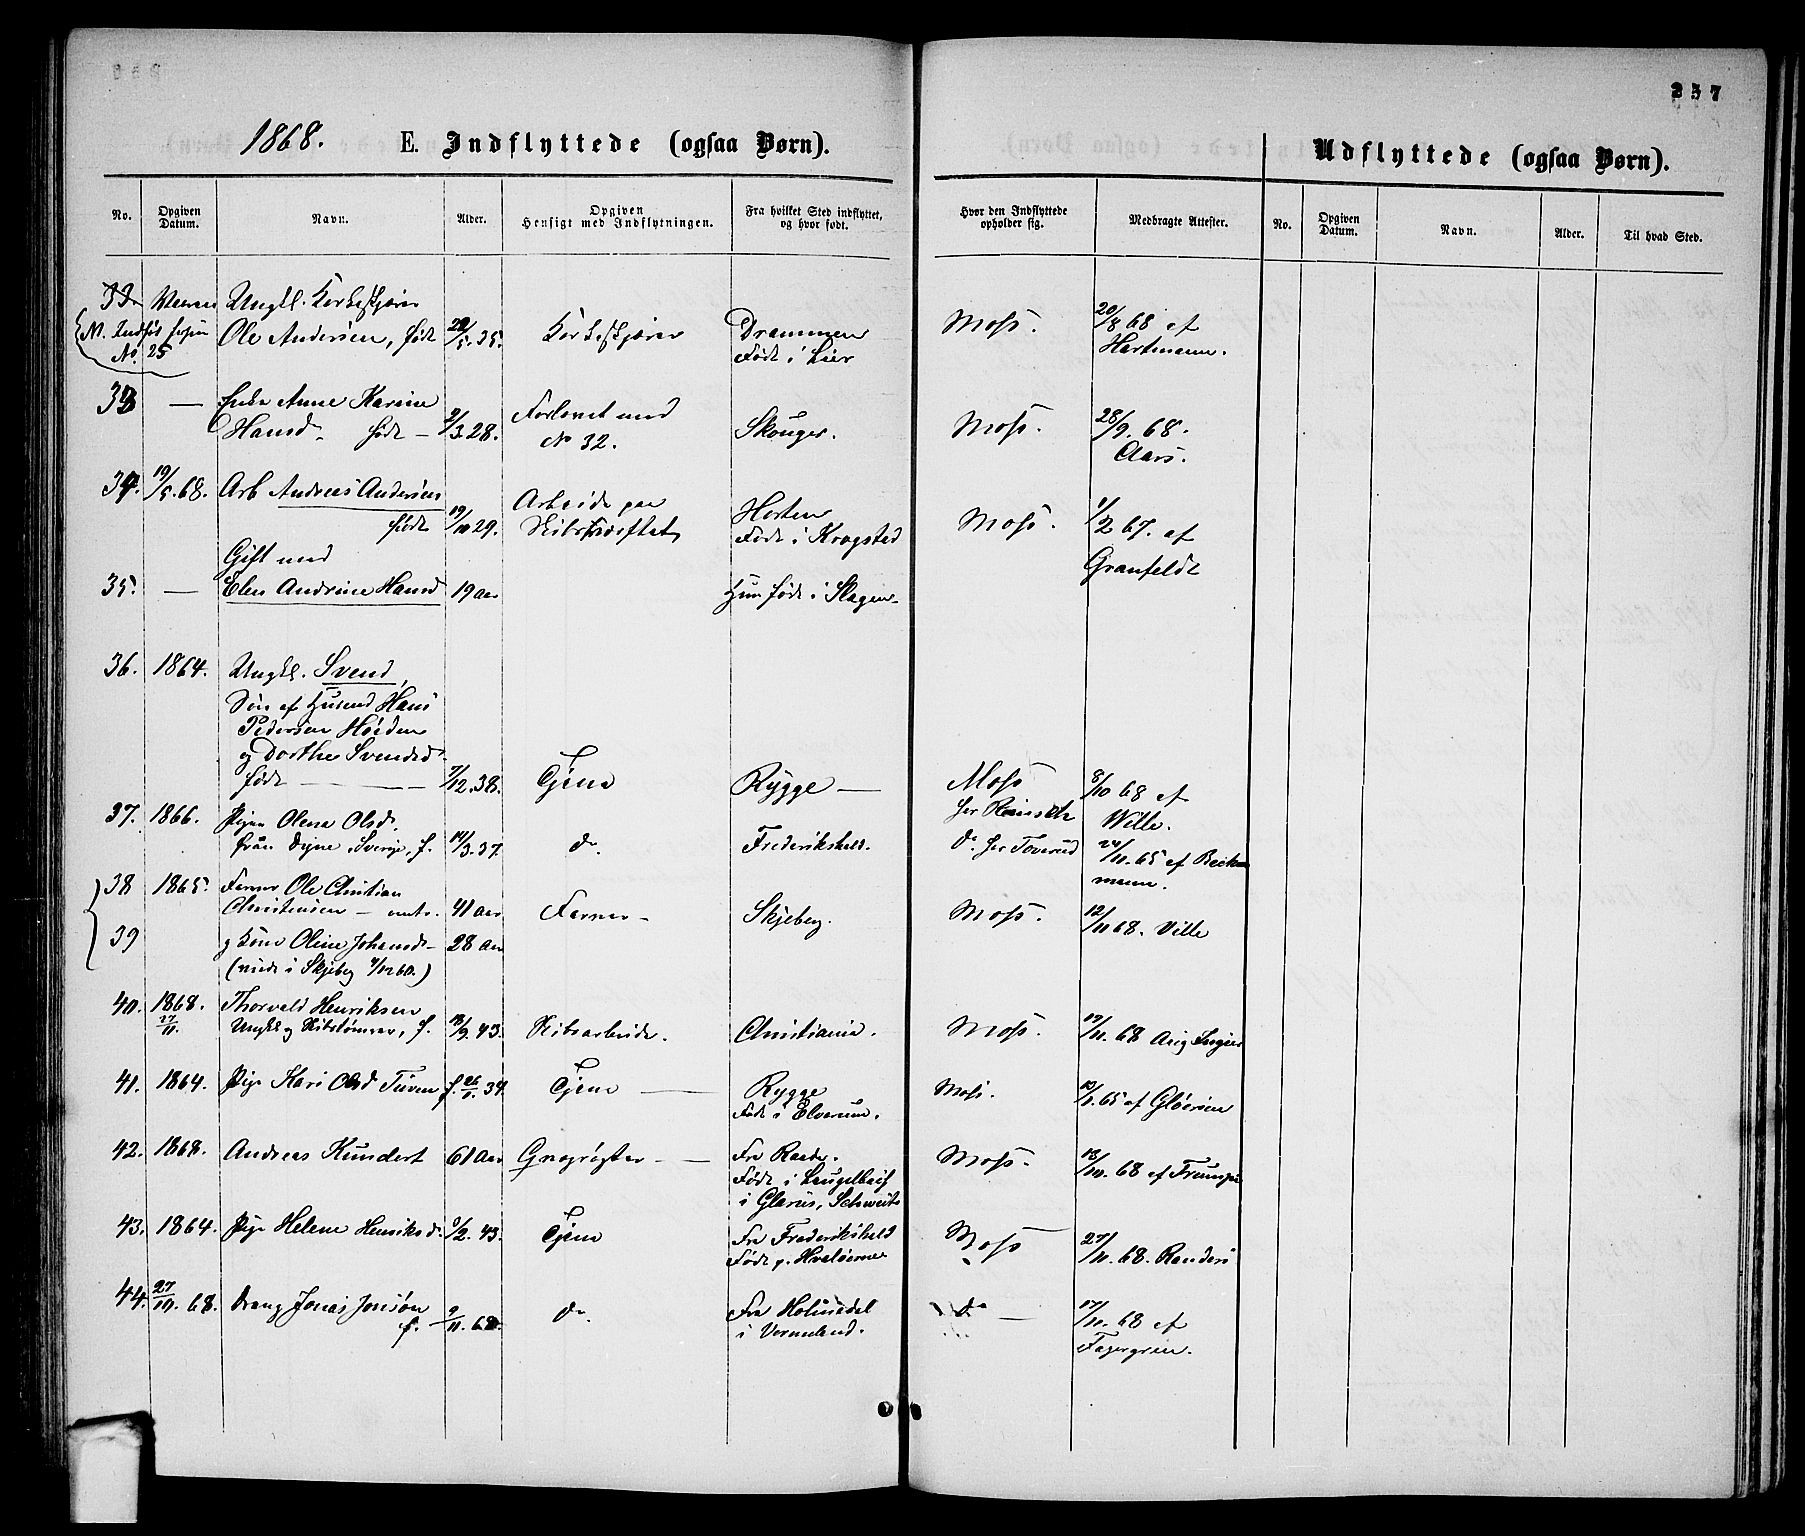 257
1868. E. Indflyttede (ogsaa Børn).
Udflyttede (ogsaa Børn).
No. Opgiven Datum. Navn. Alder. Opgiven Hensigt med Indflytningen. Fra hvilket Sted indflyttet, og hvor født. Hvor den Indflyttede opholder sig. Medbragte Attester. No. Opgiven Datum. Navn. Alder. Til hvad Sted.
Ungkl.
No. 25
Ole Andersen, født 5.35. Drammen Moss. 20/8 68 af
Født i Lier Hartmann.
33 — Enke Anne Karine
Hansd. født — 3.28. Forlovet med Skouger. Moss. 28/9. 68.
No 32. Aars.
34. 19/5.68. Arb Andreas Andersen Arbeide paa Horten Moss. 1/2 67. af
født 19/10 29. Født i Krogstad Granfeldt
Gift med
35. — Elen Andrine Hansd 19 Aar Hun født i Slagen
36. 1864. Ungkl. Svend,
Søn af Husmd Hans
Pedersen
og Dorthe Svendsd
født — 7/12.38. Tjene Rygge — Moss 8/10 68 af
Wille.
37. 1866. Pigen Olena Olsd.
från Dyne, Sverge, f. 14/3.37. do. Frederikshald. do 11.65 af Beckmann.
38 1865. Ole Christian
Christensen — 41 Aar Skjeberg. Moss. 12/11 68. Ville
39 og Kone Oline Johansd. 28 Aar
(viede i Skjeberg 4/12 60.)
40. 1868. Thorvald Henriksen
27/11. Ungkl og Skibstømmer, f. 18/9.43. Skibsarbeide. Christiania. Moss. 19/11. 68
41. 1864. Pige Kari Olsd f. 34. Tjene — Rygge Moss. 65 af Gløersen
Født i Elverum.
42. 1868. Andreas Kundert 61 Aar — Fra Raade. Moss. 18/10. 68 af
Født i
i Glarus, Schweits
43. 1864. Pige Helene Henriksd. 2.43. Tjene Fra Frederikshald Moss 27/11. 68. Randers
Født p. Hvaløerne
44. 27/10. 68. Dreng Jonas Jonsøn do. Fra Holmedal do — 17/10. 68 af
f. — 9/11. i Vermeland. Fagergren.